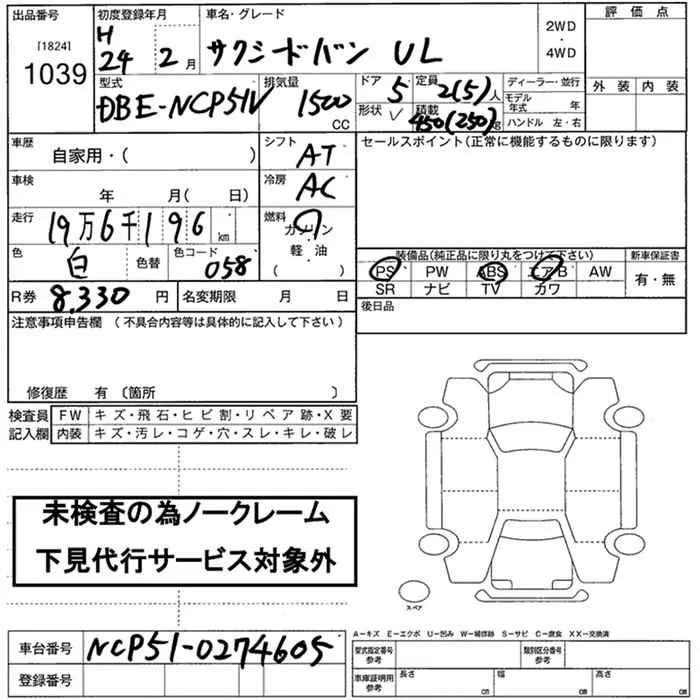 出品番号 初度登録年月 車名・グレード 2WD・4WD 評価点
[1824] H
1039 24 2月 サクシードバン UL
型式 排気量 ドア 5 定員 2(5)人 ディーラー・並行 外装 内装
DBE-NCP51V 1500 CC 形状 積載 450(250)kg モデル年式 年
ハンドル 左・右
車歴 自家用・( ) シフト AT セールスポイント(正常に機能するものに限ります)
車検 年 月( 日) 冷房 AC
走行 19万6千196km 燃料 ガソリン・軽油 ( )
色 白 色替 色コード 058
装備品(純正品に限り丸をつけて下さい) 新車保証書
PS PW ABS エアB AW 有・無
SR ナビ TV カワ
R券 8,330円 名変期限 月 日 後日品
注意事項申告欄 (不具合内容等は具体的に記入して下さい)
修復歴 有〔箇所 〕
検査員 FW キズ・飛石・ヒビ割・リペア跡・X要
記入欄 内装 キズ・汚レ・コゲ・穴・スレ・キレ・破レ
未検査の為ノークレーム
下見代行サービス対象外
スペア
A−キズ E−エクボ U−凹み W−補修跡 S−サビ C−腐食 XX−交換済
車台番号 NCP51-0274605 型式指定番号 参考 類別区分番号 参考
登録番号 車庫証明用 参考 長さ cm 幅 cm 高さ cm